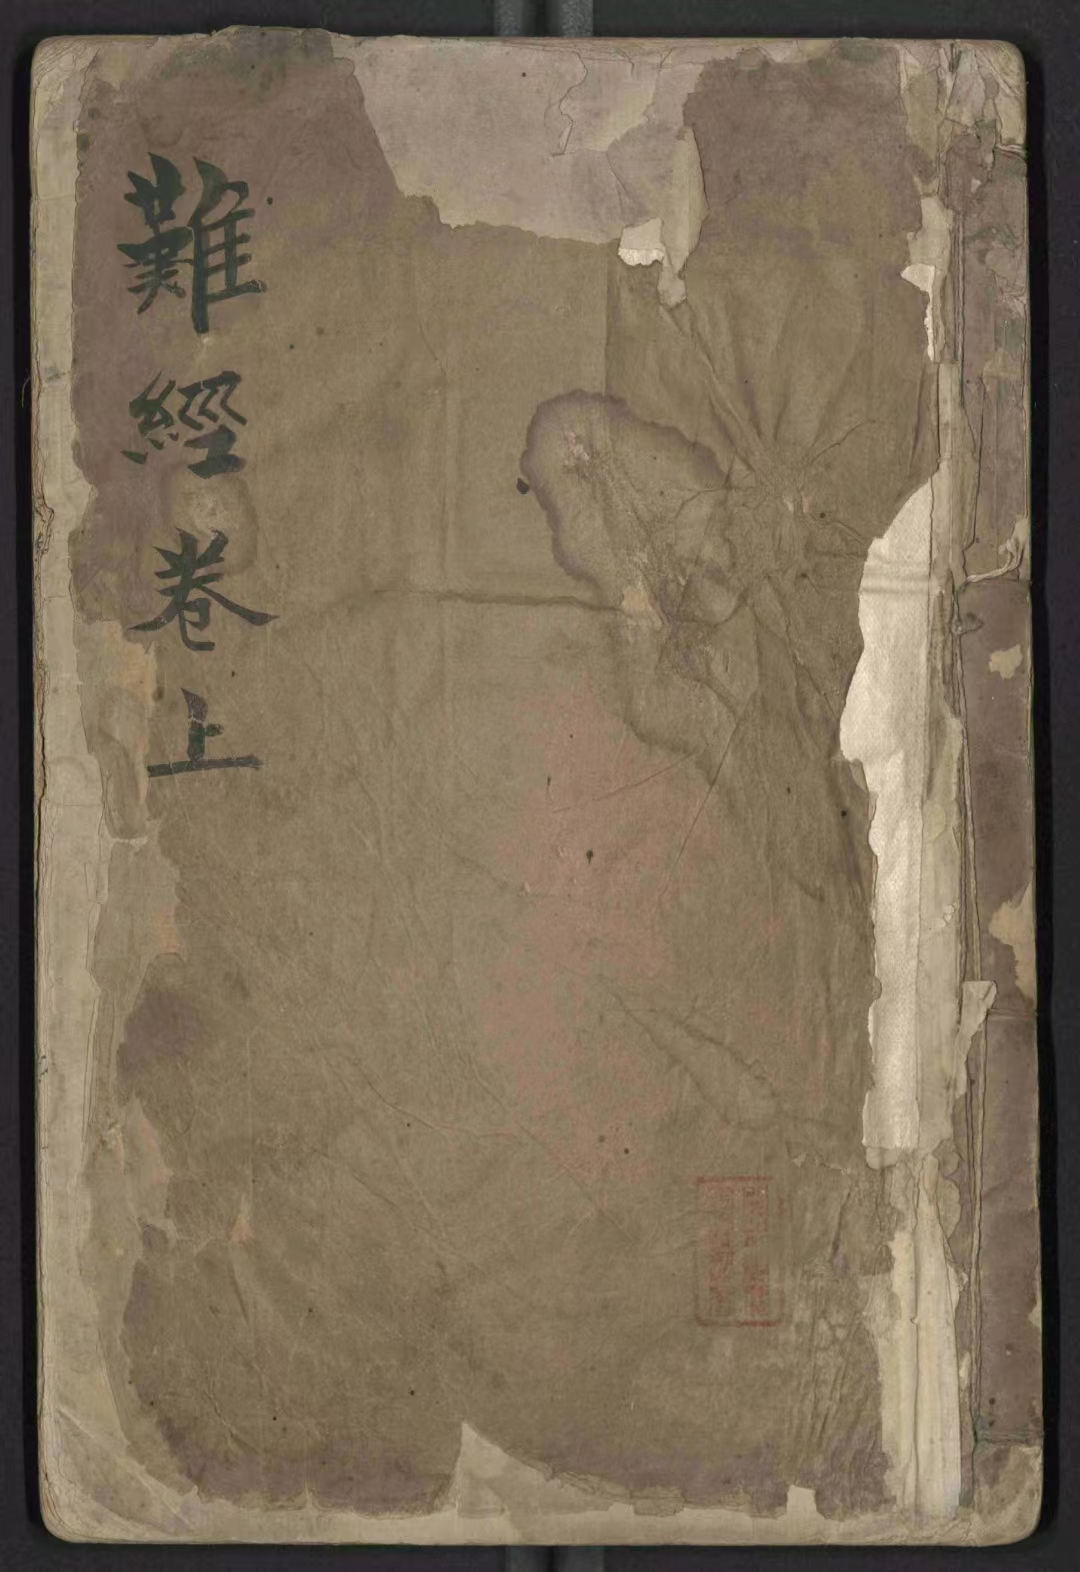 難經卷上